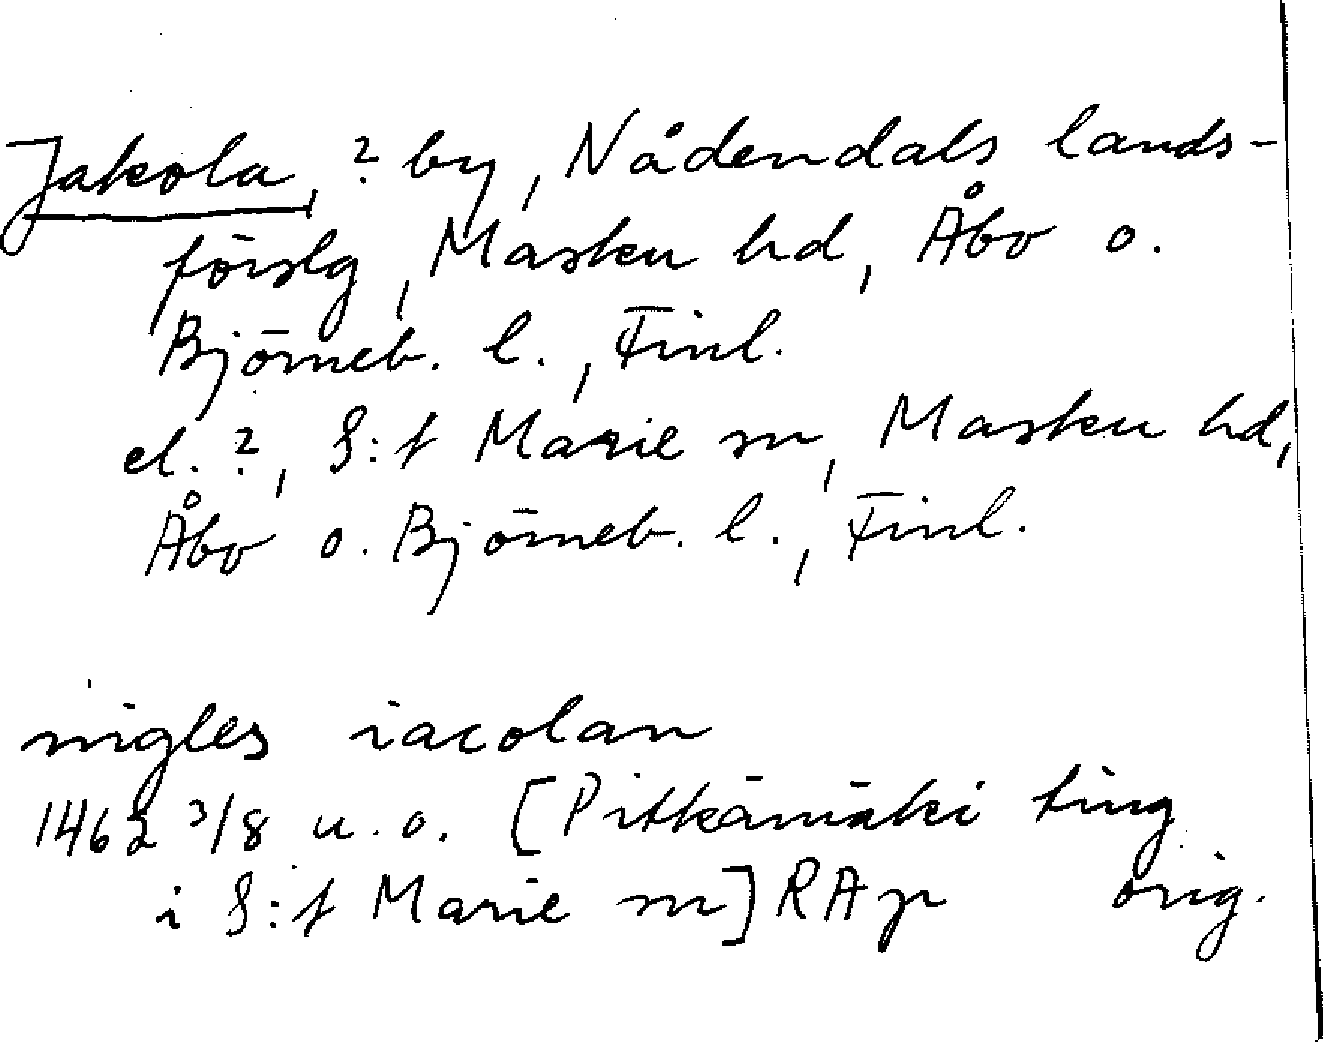 Jakola, ? by, Nådendals lands-
förslg, Masku hd, Åbo o.
Björneb. l., Finl.
el. ?, S:t Marie sn, Masku hd,
Åbo o. Björneb. l., Finl.
nigles iacolan
1462 3/8 u.o. [Pitkämäki ting
i S:t Marie sn] RAp orig.